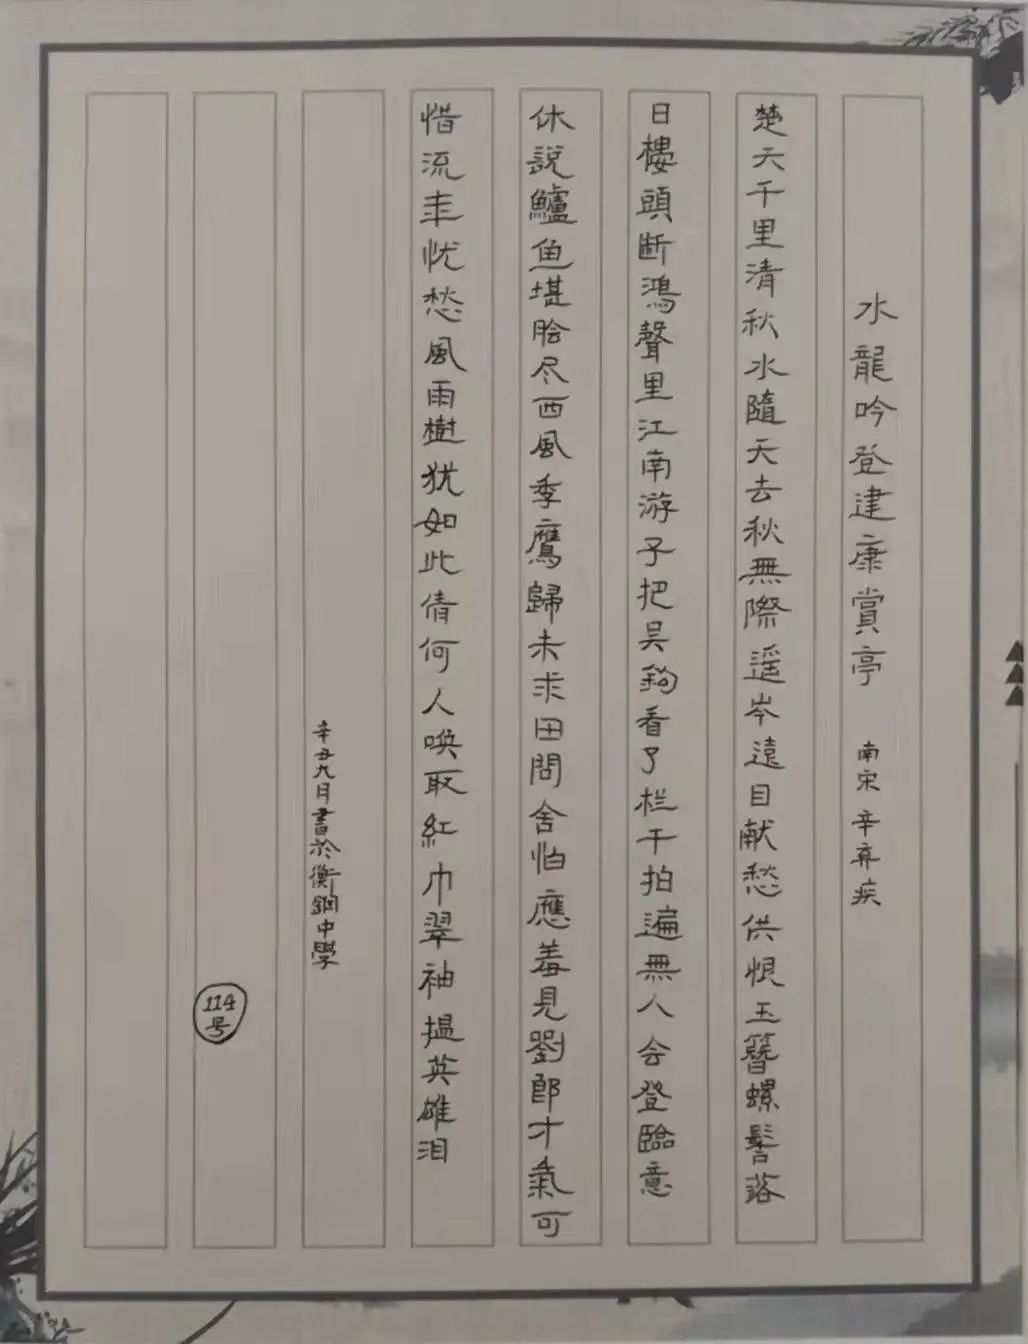 水龍吟登建康賞亭 南宋 辛弃疾
楚天千里清秋水隨天去秋無際遥岑遠目献愁供恨玉簪螺髻落
日樓頭断鴻聲里江南游子把吴鉤看了栏干拍遍無人会登臨意
休説鱸魚堪脍尽西風季鷹歸未求田問舍怕應羞見劉郎才氣可
惜流年忧愁風雨樹犹如此倩何人唤取紅巾翠袖揾英雄泪
辛丑九月書於衡鋼中學
114号